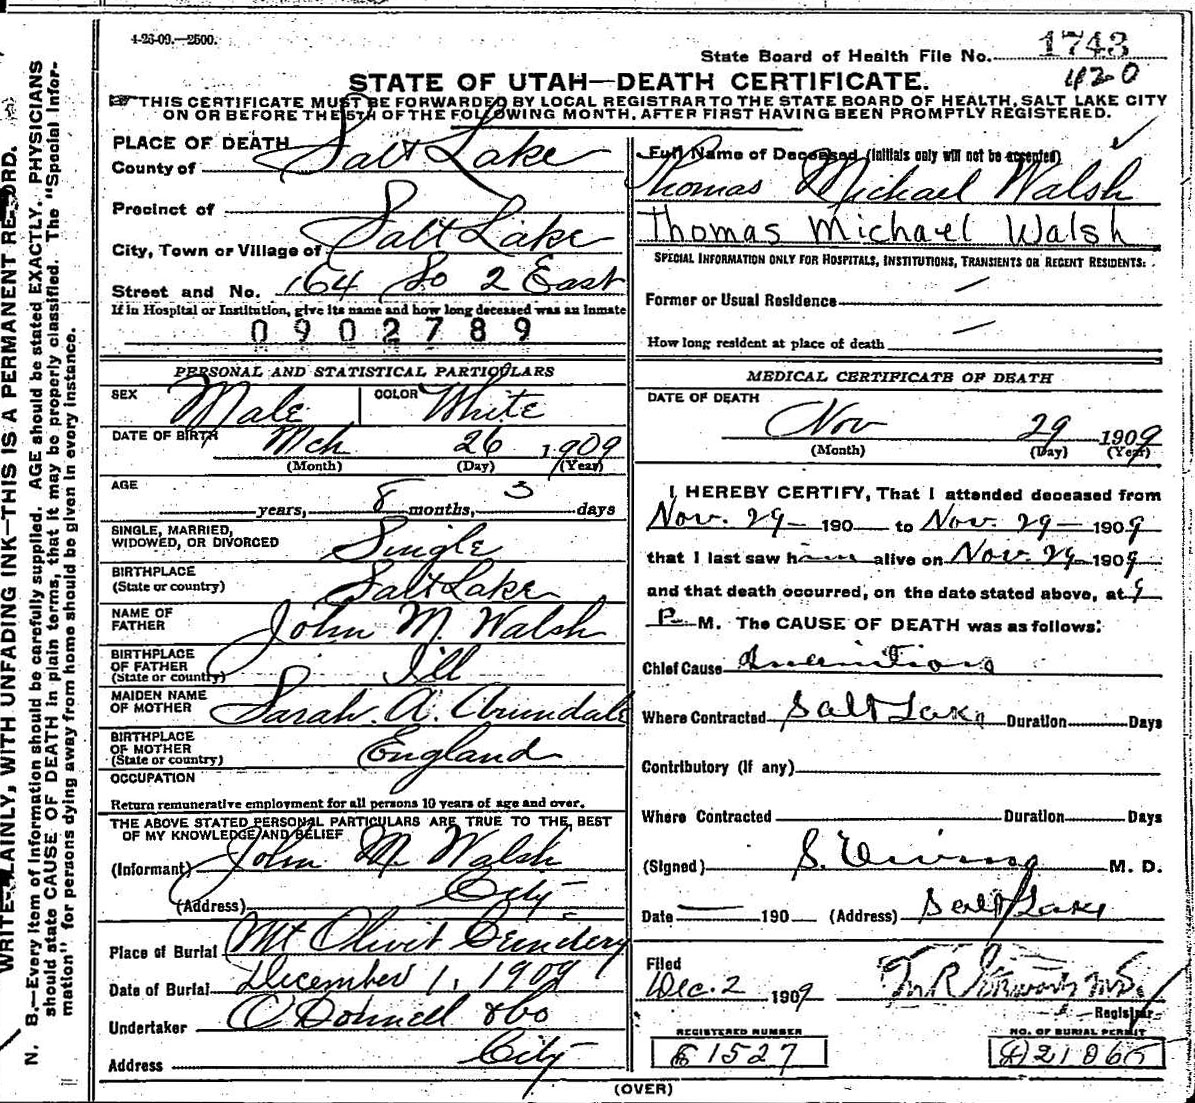 4-26-09.—2500.
State Board of Health File No. 1743
420
STATE OF UTAH—DEATH CERTIFICATE.
THIS CERTIFICATE MUST BE FORWARDED BY LOCAL REGISTRAR TO THE STATE BOARD OF HEALTH, SALT LAKE CITY
ON OR BEFORE THE 5TH OF THE FOLLOWING MONTH, AFTER FIRST HAVING BEEN PROMPTLY REGISTERED.
PLACE OF DEATH
County of Salt Lake
Precinct of
City, Town or Village of Salt Lake
Street and No. 164 So 2 East
If in Hospital or Institution, give its name and how long deceased was an inmate
0902789
PERSONAL AND STATISTICAL PARTICULARS
SEX Male COLOR White
DATE OF BIRTH Mch 26 1909
(Month) (Day) (Year)
AGE
years, 8 months, 3 days
SINGLE, MARRIED,
WIDOWED, OR DIVORCED Single
BIRTHPLACE
(State or country) Salt Lake
NAME OF
FATHER John M. Walsh
BIRTHPLACE
OF FATHER
(State or country) Ill
MAIDEN NAME
OF MOTHER Sarah A. Arundale
BIRTHPLACE
OF MOTHER
(State or country) England
OCCUPATION
Return remunerative employment for all persons 10 years of age and over.
THE ABOVE STATED PERSONAL PARTICULARS ARE TRUE TO THE BEST
OF MY KNOWLEDGE AND BELIEF
(Informant) John M. Walsh
(Address) City
Place of Burial Mt Olivit Cemetery
Date of Burial December 1, 1909
Undertaker O'Donnell & Co
Address City
Full Name of Deceased (Initials only will not be accepted)
Thomas Michael Walsh
Thomas Michael Walsh
SPECIAL INFORMATION ONLY FOR HOSPITALS, INSTITUTIONS, TRANSIENTS OR RECENT RESIDENTS:
Former or Usual Residence
How long resident at place of death
MEDICAL CERTIFICATE OF DEATH
DATE OF DEATH
Nov 29 1909
(Month) (Day) (Year)
I HEREBY CERTIFY, That I attended deceased from
Nov. 29 190 to Nov. 29 1909
that I last saw him alive on Nov. 29 1909
and that death occurred, on the date stated above, at 9
P M. The CAUSE OF DEATH was as follows:
Chief Cause Inanition
Where Contracted Salt Lake Duration Days
Contributory (If any)
Where Contracted Duration Days
(Signed) S. Ewing M. D.
Date 190 (Address) Salt Lake
Filed
Dec. 2 1909
Registrar
REGISTERED NUMBER
1527
NO. OF BURIAL PERMIT
(OVER)
WRITE PLAINLY, WITH UNFADING INK—THIS IS A PERMANENT RECORD.
N. B.—Every item of Information should be carefully supplied. AGE should be stated EXACTLY. PHYSICIANS
should state CAUSE OF DEATH in plain terms, that it may be properly classified. The "Special Infor-
mation" for persons dying away from home should be given in every instance.